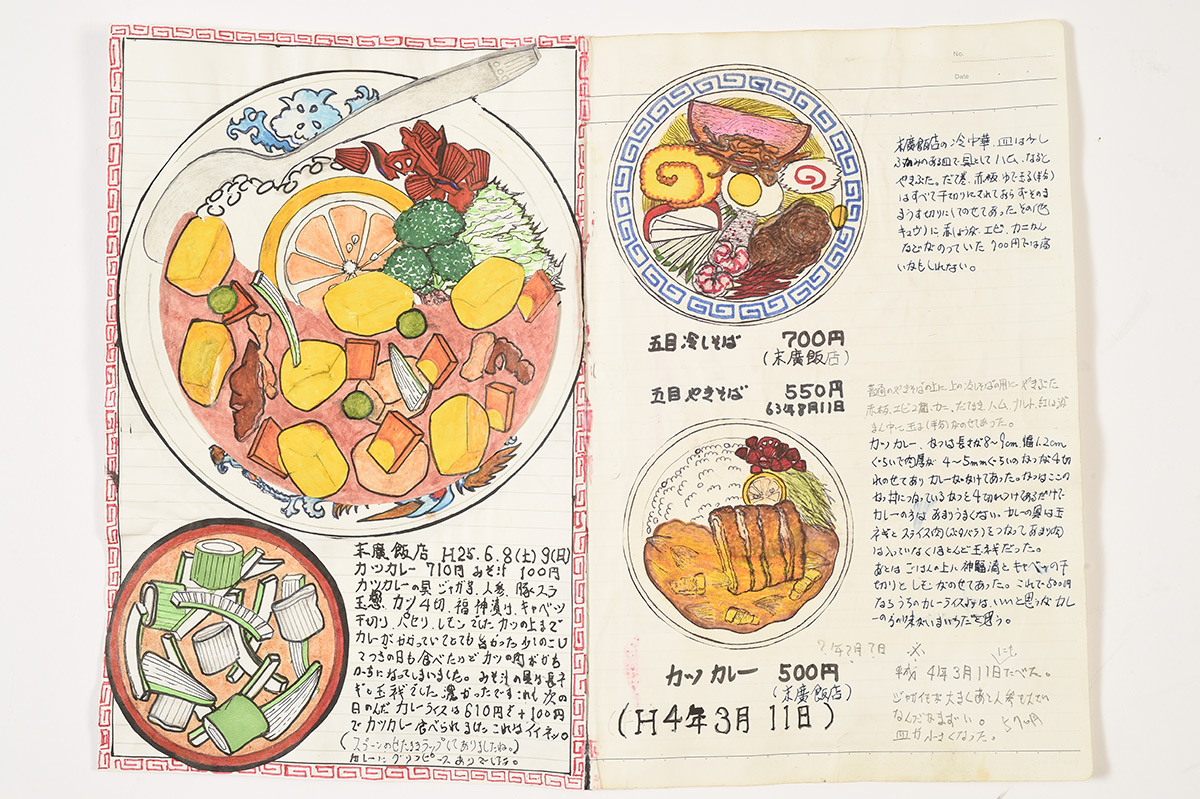 末廣飯店 H25.6.8(土)9(日)
カツカレー 710円 みそ汁 100円
カツカレーの具 ジャガ芋、人参、豚スラ
玉葱、カツ4切、福神漬け、キャベツ
千切り、パセリ、レモン でした カツの上まで
カレーがかかっていてとても旨かった 少しのこし
てつぎの日も食べたけどカツの肉がカ
になってしまいました。みそ汁の具は長ネ
ギと玉 でした 濃かったです これも次の
日のんだ カレーライスは610円 +100円
でカツカレー食べられました これはイイネッ。
(スプーンのせたままラップしてありましたね。)
カレーに グリンピース ありでした。
No.
Date
末廣飯店の冷中華 皿は少し
みのある皿で具として ハム、なると
やきぶた。だて巻、赤板 ゆでたまご(半分)
はすべて千切りにされておらずそのま
まうす切りにしてのせてあった その他
キュウリに 紅しょうが、エビ、カニかん
などがのっていた 700円では高
いかもしれない。
五目冷しそば 700円
(末廣飯店)
五目やきそば 550円
63年8月11日
普通のやきそばの上に上の冷しそばの用に やきぶた
赤板、エビ2 、カニ、だてまき、ハム、ナルト、紅しょうが
まん中に玉子(半分)がのせてあった。
カツカレー、カツは長さが8〜9cm 幅1.2cm
ぐらいで肉厚が 4〜5mmぐらいのカツが4切
れのせてあり カレーがかけてあった。カツはここの
カツ丼につかっているカツと4切れつけてあるだけで
カレーの は あまりうまくない。カレーの具は玉
ネギと スライス肉(ブタバラ)をつかってあまり肉
は入っていなくほとんど玉 だった。
あとは ごはんの上に 神 漬とキャベツの千
切りと レモンがのせてあった。これで500円
ならうちのカレーライスよりは、いいと思ったが カレ
ーのうの味がいまいちだと思う。
カツカレー 500円
(末廣飯店)
(H4年3月11日)
年2月7日
平成 4年3月11日にたべた。
ジャガイモが大きくあと人参も
なんだかまずい。
皿が小さくなった。 570円